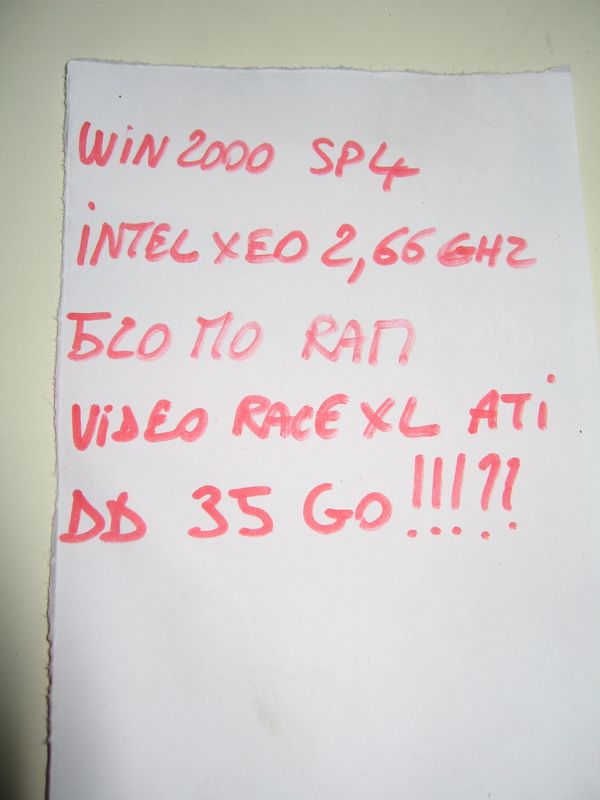 WIN 2000 SP4
INTEL XEO 2,66 GHZ
520 MO RAM
VIDEO RAGE XL ATI
DD 35 GO !!!??